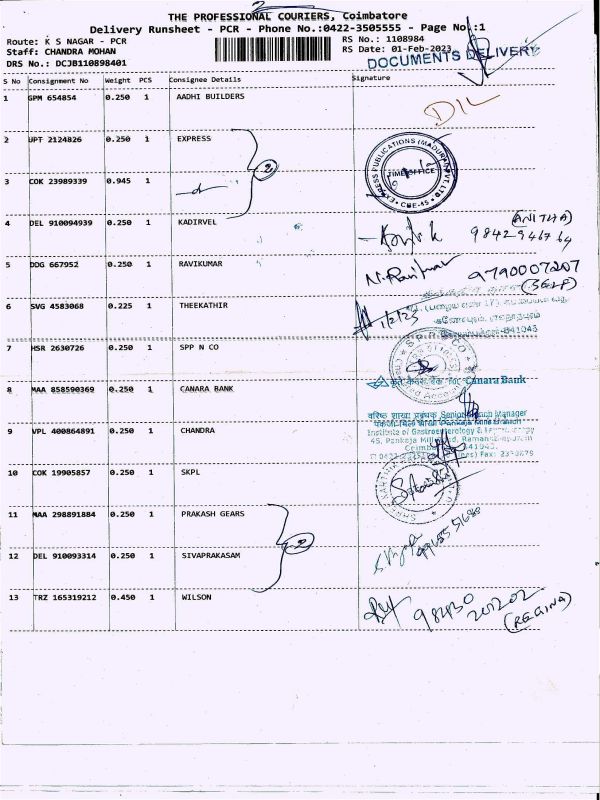 2
THE PROFESSIONAL COURIERS, Coimbatore
Delivery Runsheet - PCR - Phone No.:0422-3505555 - Page No.:1
Route: K S NAGAR - PCR
RS No.: 1108984
Staff: CHANDRA MOHAN
RS Date: 01-Feb-2023
DRS No.: DCJB110898401
DOCUMENTS DELIVERY
S No Consignment No Weight PCS Consignee Details Signature
1 GPM 654854 0.250 1 AADHI BUILDERS
D/L
2 UPT 2124826 0.250 1 EXPRESS
EXPRESS PUBLICATIONS (MADURAI) PVT. LTD
TIME OFFICE
CBE-45
3 COK 23989339 0.945 1
2
4 DEL 910094939 0.250 1 KADIRVEL
(ANITHA)
9842946764
5 DDG 667952 0.250 1 RAVIKUMAR
N. Ravikumar 9790007207
(SELF)
6 SVG 4583068 0.225 1 THEEKATHIR
1/2/23
641045
7 HSR 2630726 0.250 1 SPP N CO
8 MAA 858590369 0.250 1 CANARA BANK
Canara Bank
Senior Branch Manager
Pankaja Mills Branch
9 VPL 400864891 0.250 1 CHANDRA
Institute of Gastroenterology &
45, Pankaja Mill Road, Ramanathapuram
10 COK 19905857 0.250 1 SKPL
11 MAA 298891884 0.250 1 PRAKASH GEARS
2
12 DEL 910093314 0.250 1 SIVAPRAKASAM
13 TRZ 165319212 0.450 1 WILSON
98430 201202
(REGINA)